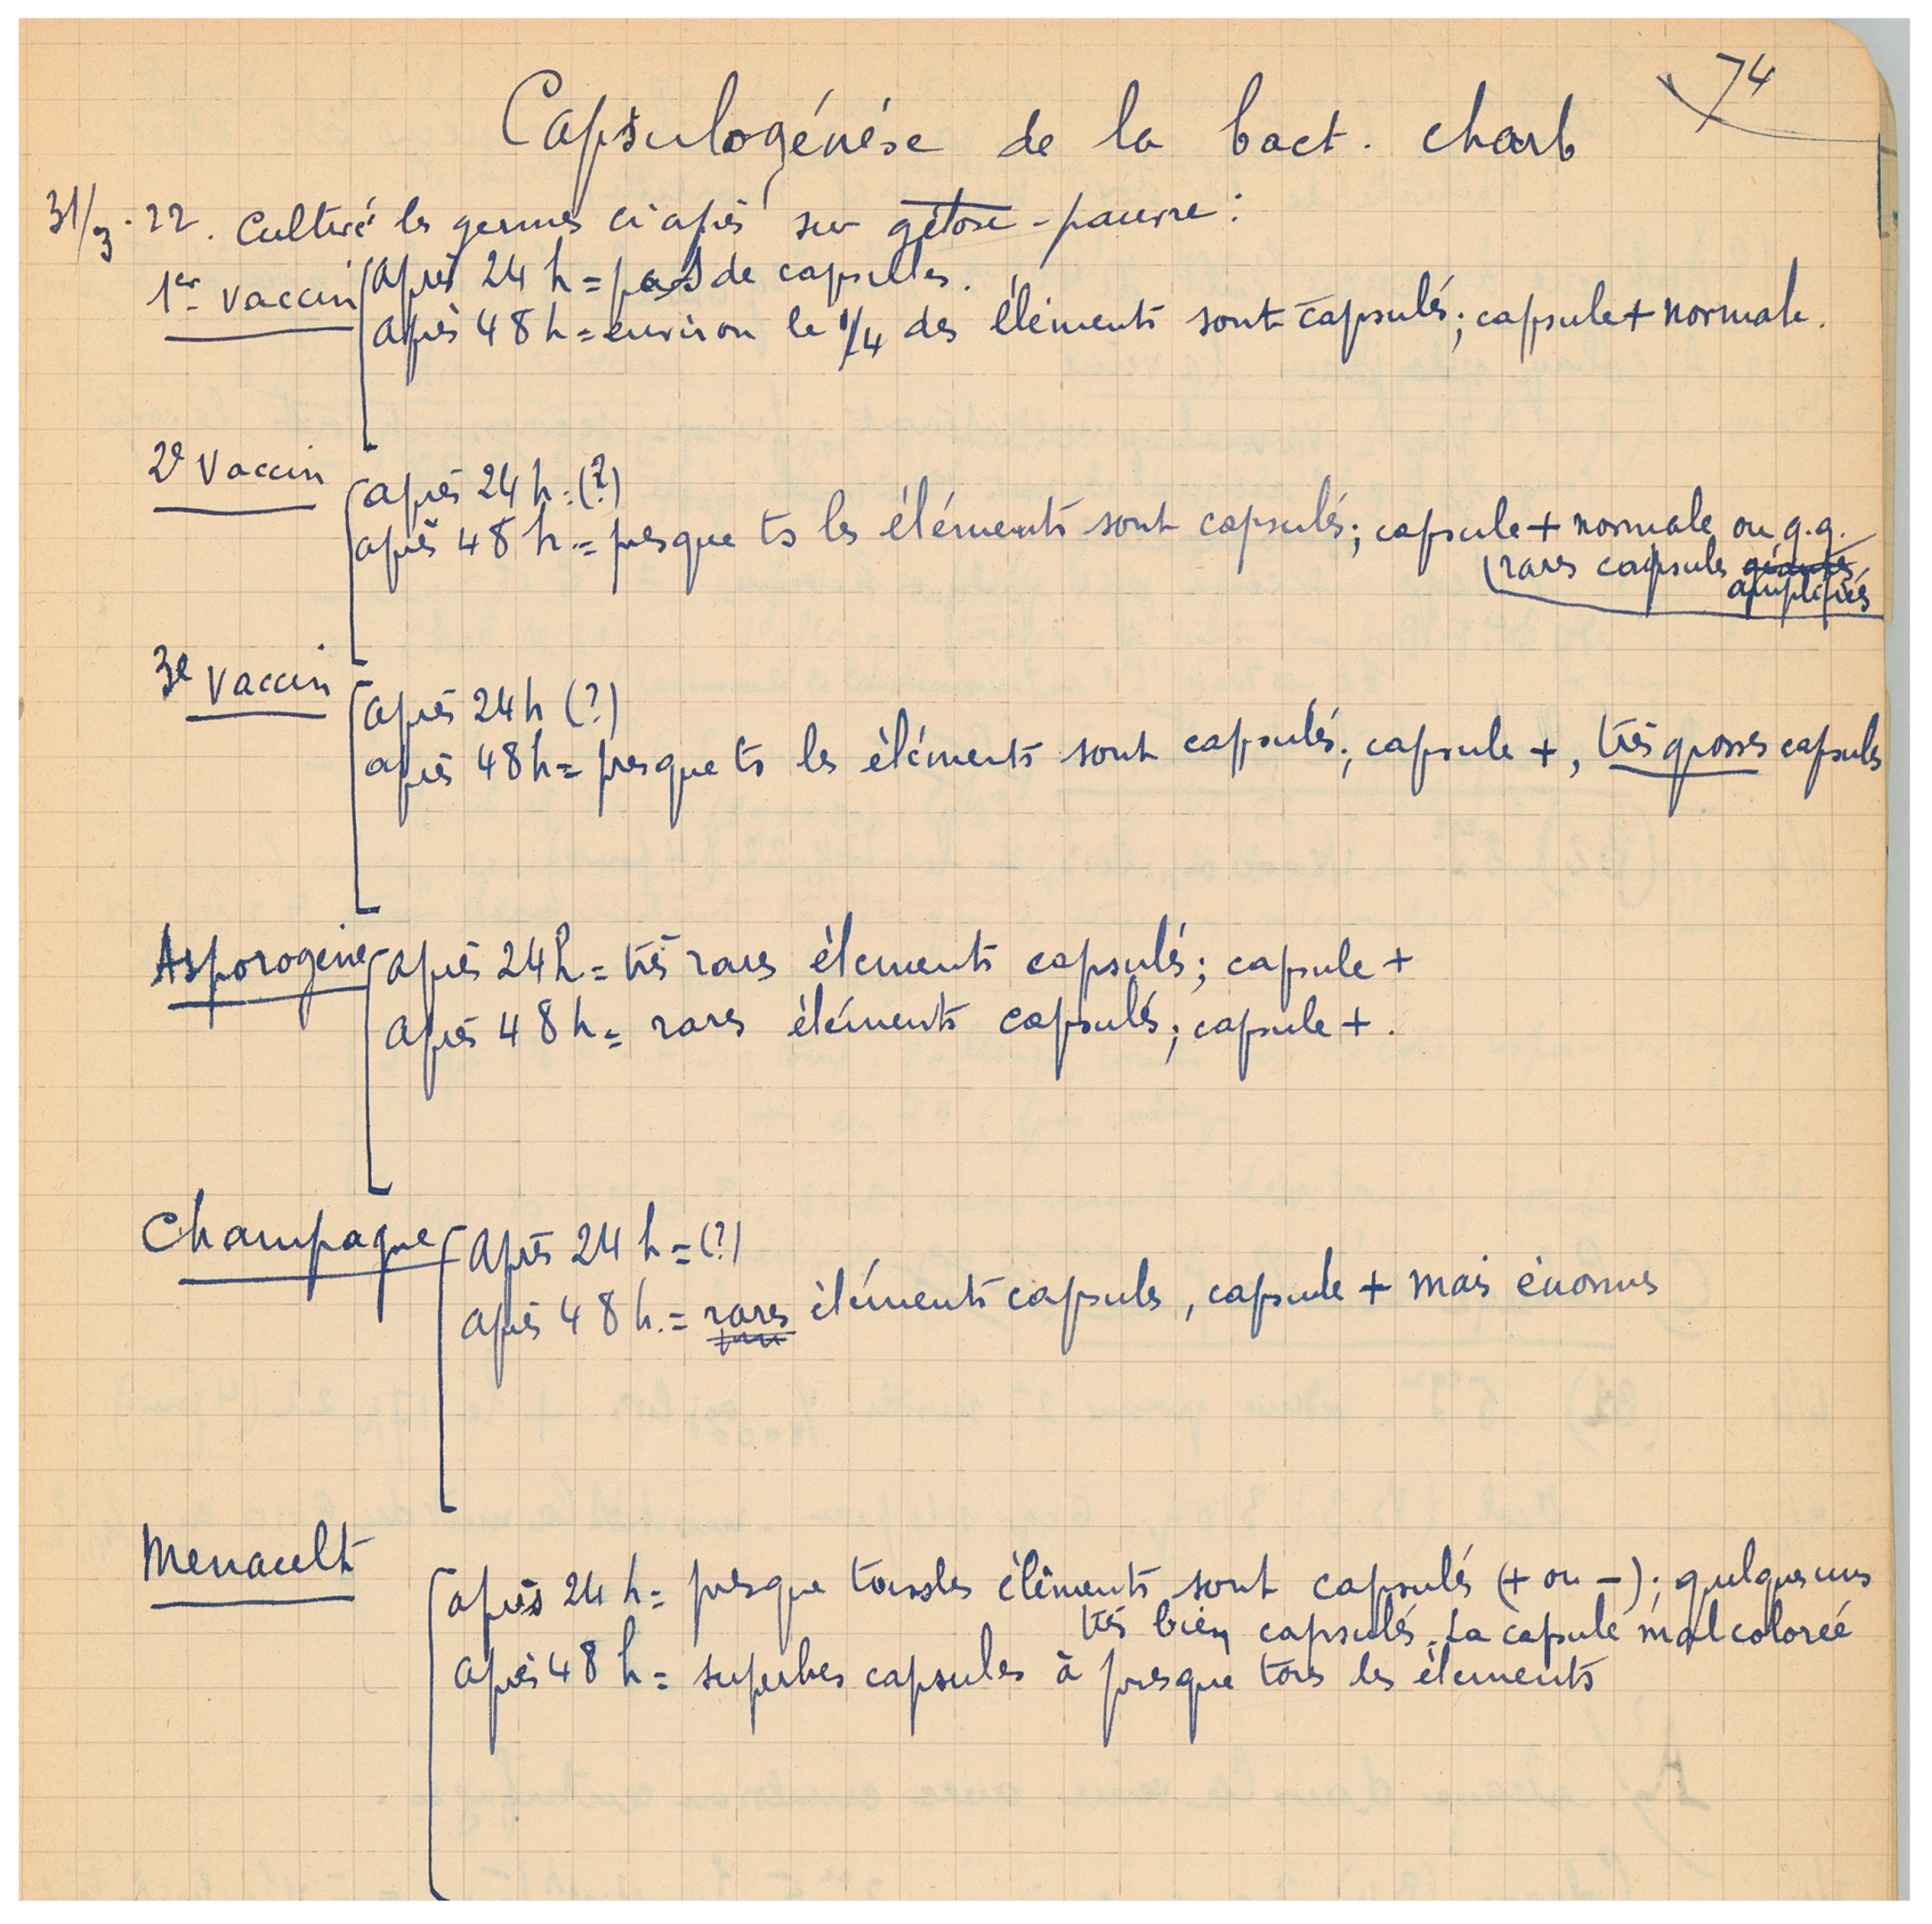 74
Capsulogénèse de la bact. charb
31/3.22. Cultivé les germes ci après sur gélose-pauvre :
1er vaccin
après 24 h = pas de capsules.
après 48 h = environ le 1/4 des éléments sont capsulés ; capsule + normale.
2e Vaccin
après 24 h = (?)
après 48 h = presque ts les éléments sont capsulés ; capsule + normale ou q.q.
rares capsules géantes
amplifiés
3e Vaccin
après 24h (?)
après 48h = presque ts les éléments sont capsulés ; capsule +, très grosses capsules
Asporogène
après 24h = très rares éléments capsulés ; capsule +
après 48h = rares éléments capsulés ; capsule + .
Champagne
après 24 h = (?)
après 48 h. = rares éléments capsulés, capsule + mais énormes
Menault
après 24 h = presque tous les éléments sont capsulés (+ ou −) ; quelques uns
très bien capsulés. La capsule mal colorée
après 48 h = superbes capsules à presque tous les éléments